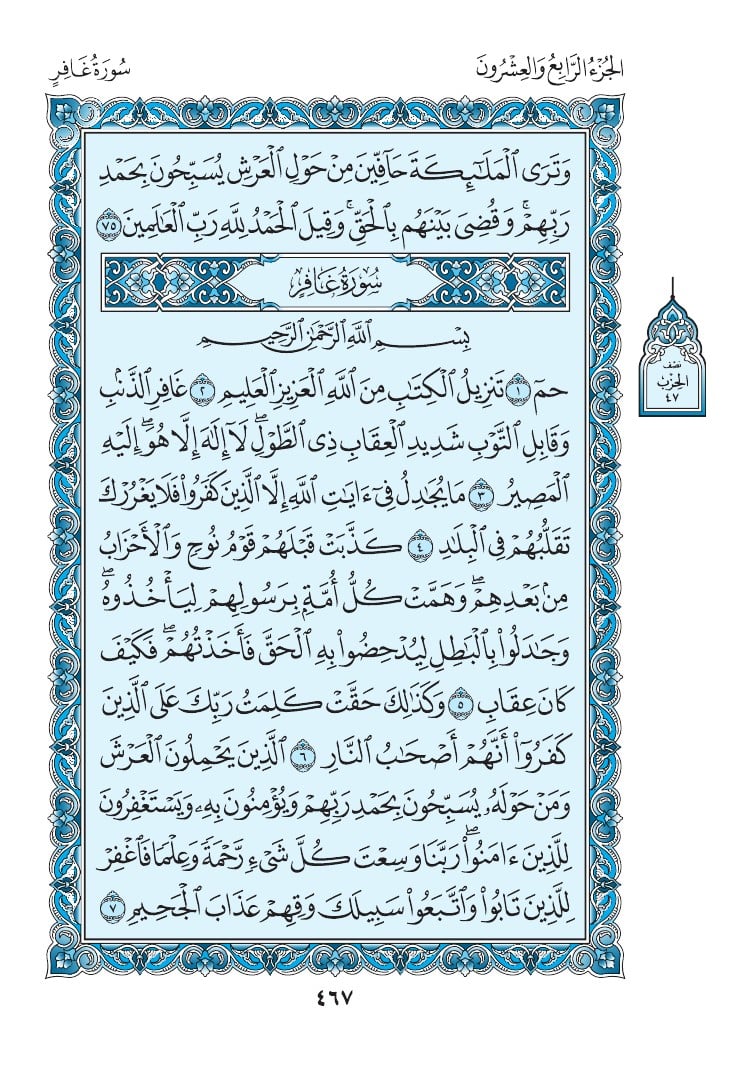 الجُزْءُ الرَّابِعُ وَالعِشْرُونَ
سُورَةُ غَافِرٍ
وَتَرَى ٱلْمَلَٰٓئِكَةَ حَآفِّينَ مِنْ حَوْلِ ٱلْعَرْشِ يُسَبِّحُونَ بِحَمْدِ
رَبِّهِمْۚ وَقُضِىَ بَيْنَهُم بِٱلْحَقِّۚ وَقِيلَ ٱلْحَمْدُ لِلَّهِ رَبِّ ٱلْعَٰلَمِينَ ٧٥
سُورَةُ غَافِرٍ
بِسْمِ ٱللَّهِ ٱلرَّحْمَٰنِ ٱلرَّحِيمِ
حمٓ ١ تَنزِيلُ ٱلْكِتَٰبِ مِنَ ٱللَّهِ ٱلْعَزِيزِ ٱلْعَلِيمِ ٢ غَافِرِ ٱلذَّنۢبِ
وَقَابِلِ ٱلتَّوْبِ شَدِيدِ ٱلْعِقَابِ ذِى ٱلطَّوْلِۖ لَآ إِلَٰهَ إِلَّا هُوَۖ إِلَيْهِ
ٱلْمَصِيرُ ٣ مَا يُجَٰدِلُ فِىٓ ءَايَٰتِ ٱللَّهِ إِلَّا ٱلَّذِينَ كَفَرُوا۟ فَلَا يَغْرُرْكَ
تَقَلُّبُهُمْ فِى ٱلْبِلَٰدِ ٤ كَذَّبَتْ قَبْلَهُمْ قَوْمُ نُوحٍ وَٱلْأَحْزَابُ
مِنۢ بَعْدِهِمْۖ وَهَمَّتْ كُلُّ أُمَّةٍۭ بِرَسُولِهِمْ لِيَأْخُذُوهُۖ
وَجَٰدَلُوا۟ بِٱلْبَٰطِلِ لِيُدْحِضُوا۟ بِهِ ٱلْحَقَّ فَأَخَذْتُهُمْۖ فَكَيْفَ
كَانَ عِقَابِ ٥ وَكَذَٰلِكَ حَقَّتْ كَلِمَتُ رَبِّكَ عَلَى ٱلَّذِينَ
كَفَرُوٓا۟ أَنَّهُمْ أَصْحَٰبُ ٱلنَّارِ ٦ ٱلَّذِينَ يَحْمِلُونَ ٱلْعَرْشَ
وَمَنْ حَوْلَهُۥ يُسَبِّحُونَ بِحَمْدِ رَبِّهِمْ وَيُؤْمِنُونَ بِهِۦ وَيَسْتَغْفِرُونَ
لِلَّذِينَ ءَامَنُوا۟ۖ رَبَّنَا وَسِعْتَ كُلَّ شَىْءٍ رَّحْمَةً وَعِلْمًا فَٱغْفِرْ
لِلَّذِينَ تَابُوا۟ وَٱتَّبَعُوا۟ سَبِيلَكَ وَقِهِمْ عَذَابَ ٱلْجَحِيمِ ٧
نصف
الحزب
٤٧
٤٦٧